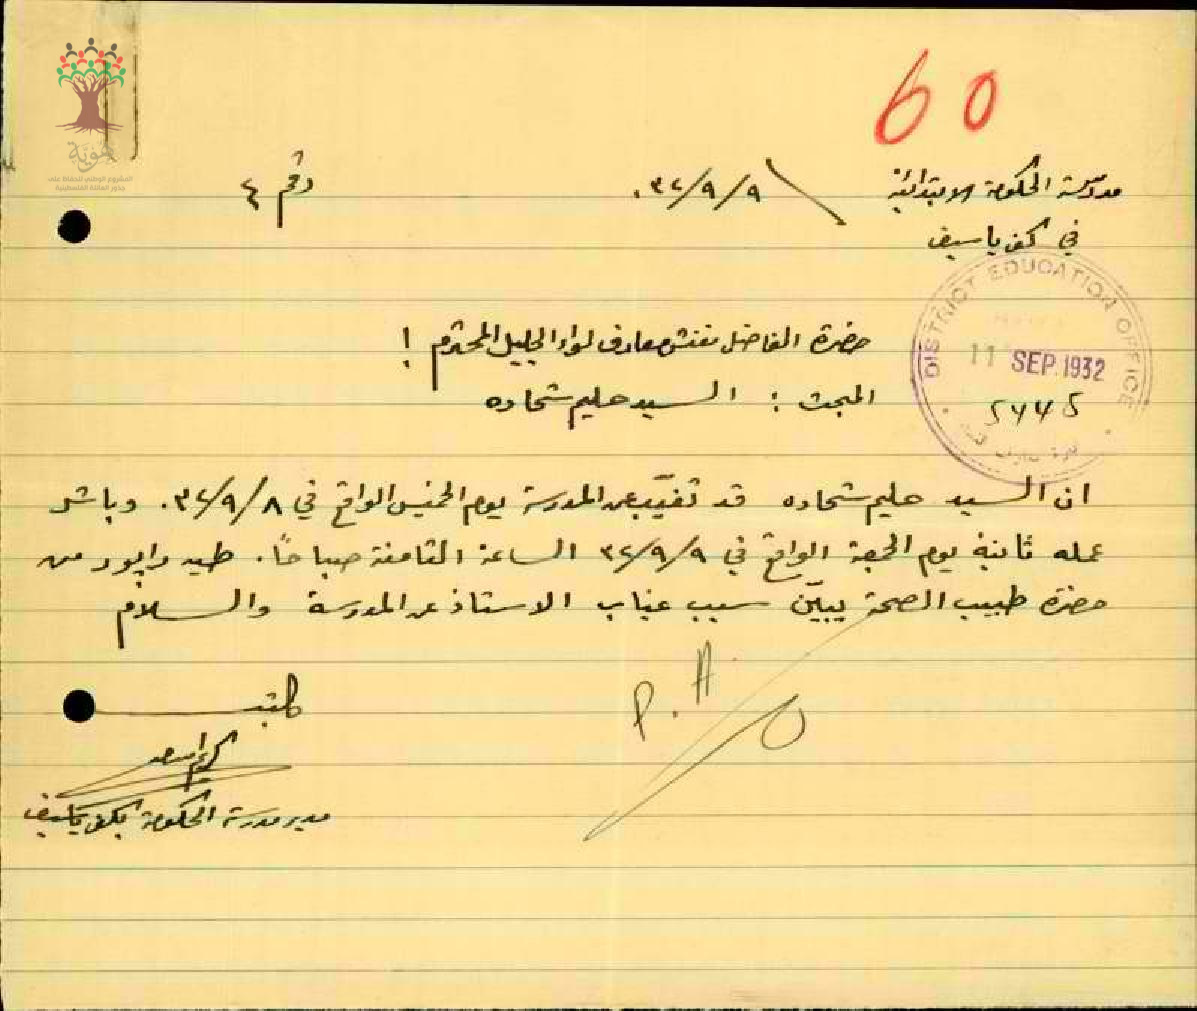 60
مدرسة الحكومة الابتدائية ٣٢/٩/٩. رقم ٤
في كفر ياسيف
DISTRICT EDUCATION OFFICE
11 SEP. 1932
حضرة الفاضل مفتش معارف لواء الجليل المحترم !
المبحث : السيد حليم شحاده
ان السيد حليم شحاده قد تغيّب عن المدرسة يوم الخميس الواقع في ٣٢/٩/٨. وباشر
عمله ثانية يوم الجمعة الواقع في ٣٢/٩/٩ الساعة الثامنة صباحًا. طيه رابور من
حضرة طبيب الصحة يبيّن سبب غياب الاستاذ عن المدرسة والسلام
P.A.
مدير مدرسة الحكومة بكفر ياسيف
هوية
المشروع الوطني للحفاظ على
جذور العائلة الفلسطينية